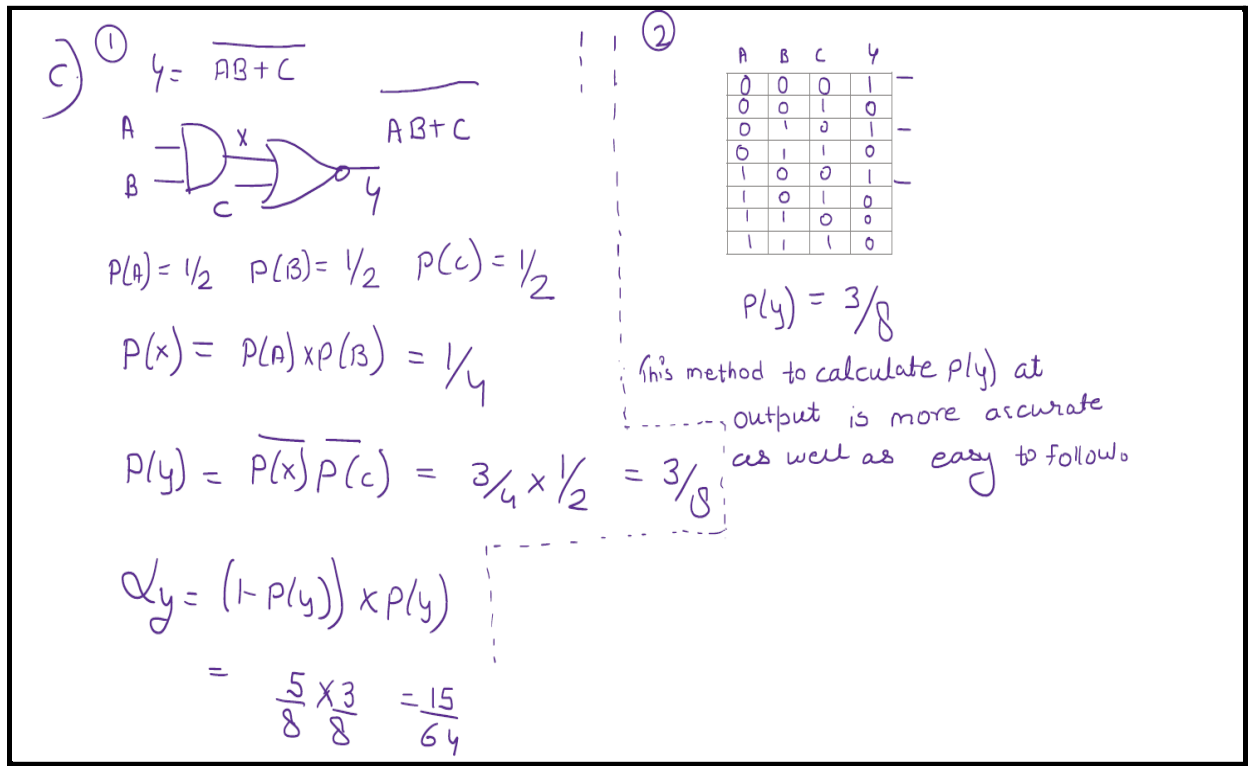 c) ① y = \overline{AB+C}
\overline{AB+C}
A
X
B
C
y
P(A) = 1/2 P(B) = 1/2 P(C) = 1/2
P(x) = P(A) x P(B) = 1/4
P(y) = \overline{P(x)} \overline{P(c)} = 3/4 x 1/2 = 3/8
αy = (1-P(y)) x P(y)
= 5/8 x 3/8 = 15/64
②
A B C Y
0 0 0 1 -
0 0 1 0
0 1 0 1 -
0 1 1 0
1 0 0 1 -
1 0 1 0
1 1 0 0
1 1 1 0
P(y) = 3/8
This method to calculate P(y) at
output is more accurate
as well as easy to follow.